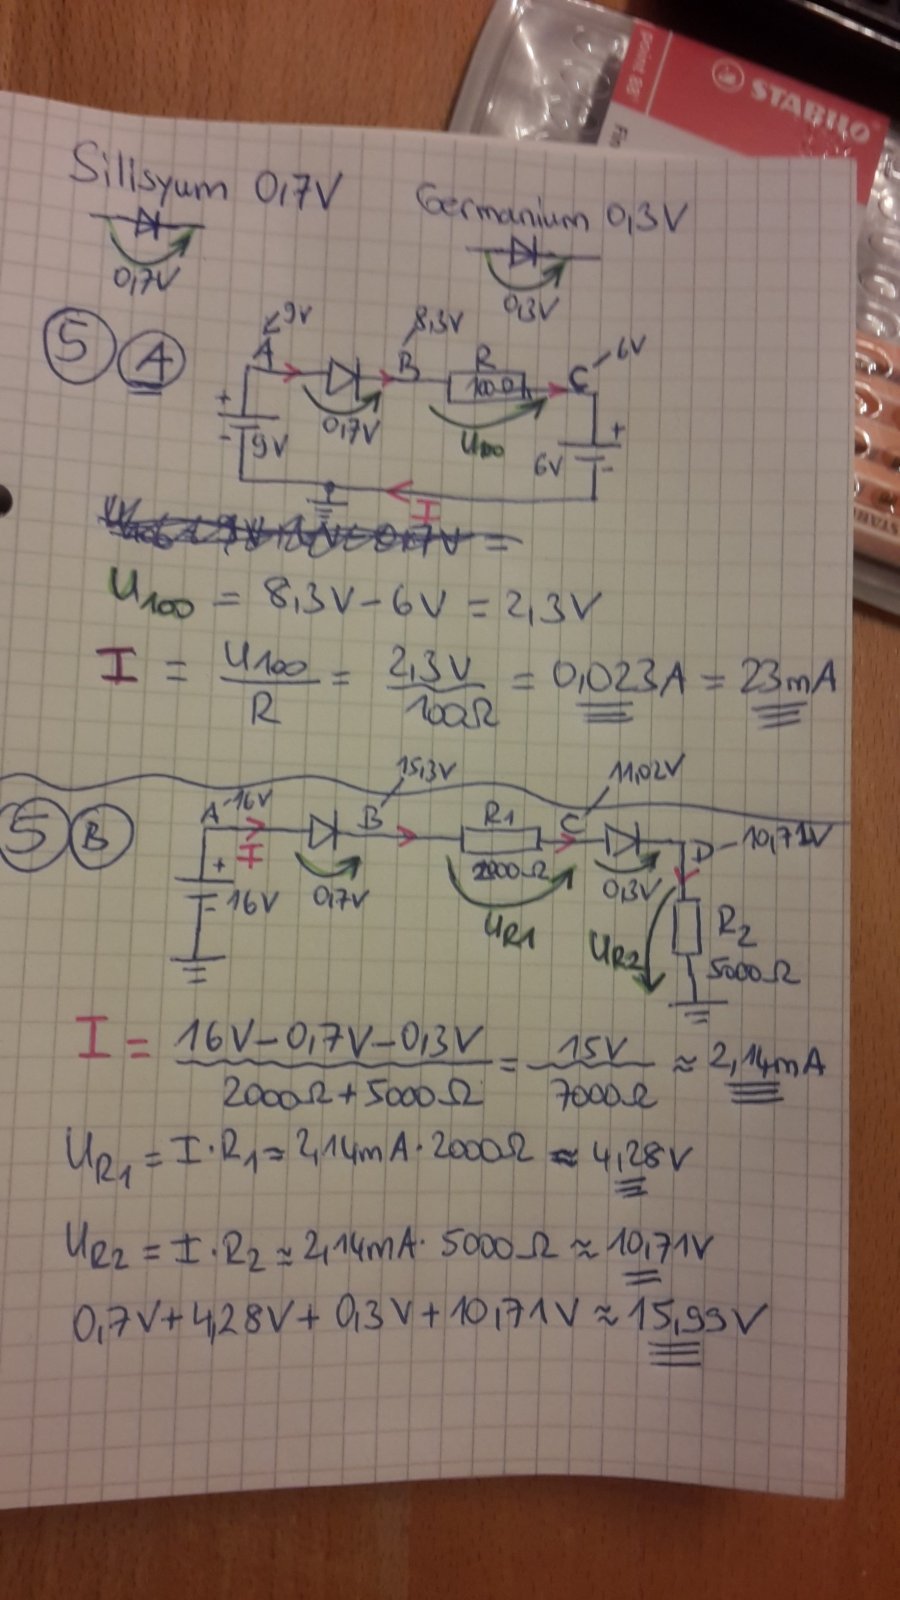 point 88
STABILO
Silisyum 0,7V
Germanium 0,3V
0,7V
0,3V
5 A
9V
A
8,3V
B
R
100Ω
C
6V
+
-
9V
0,7V
U100
6V
+
-
I
U100 = 8,3V - 6V = 2,3V
I = U100/R = 2,3V/100Ω = 0,023A = 23mA
5 B
A
16V
I
+
-
16V
0,7V
B
15,3V
R1
2000Ω
UR1
C
11,02V
0,3V
D
10,71V
UR2
R2
5000Ω
I = 16V-0,7V-0,3V/2000Ω+5000Ω = 15V/7000Ω ≈ 2,14mA
UR1 = I·R1 ≈ 2,14mA·2000Ω ≈ 4,28V
UR2 = I·R2 ≈ 2,14mA·5000Ω ≈ 10,71V
0,7V+4,28V+0,3V+10,71V ≈ 15,99V